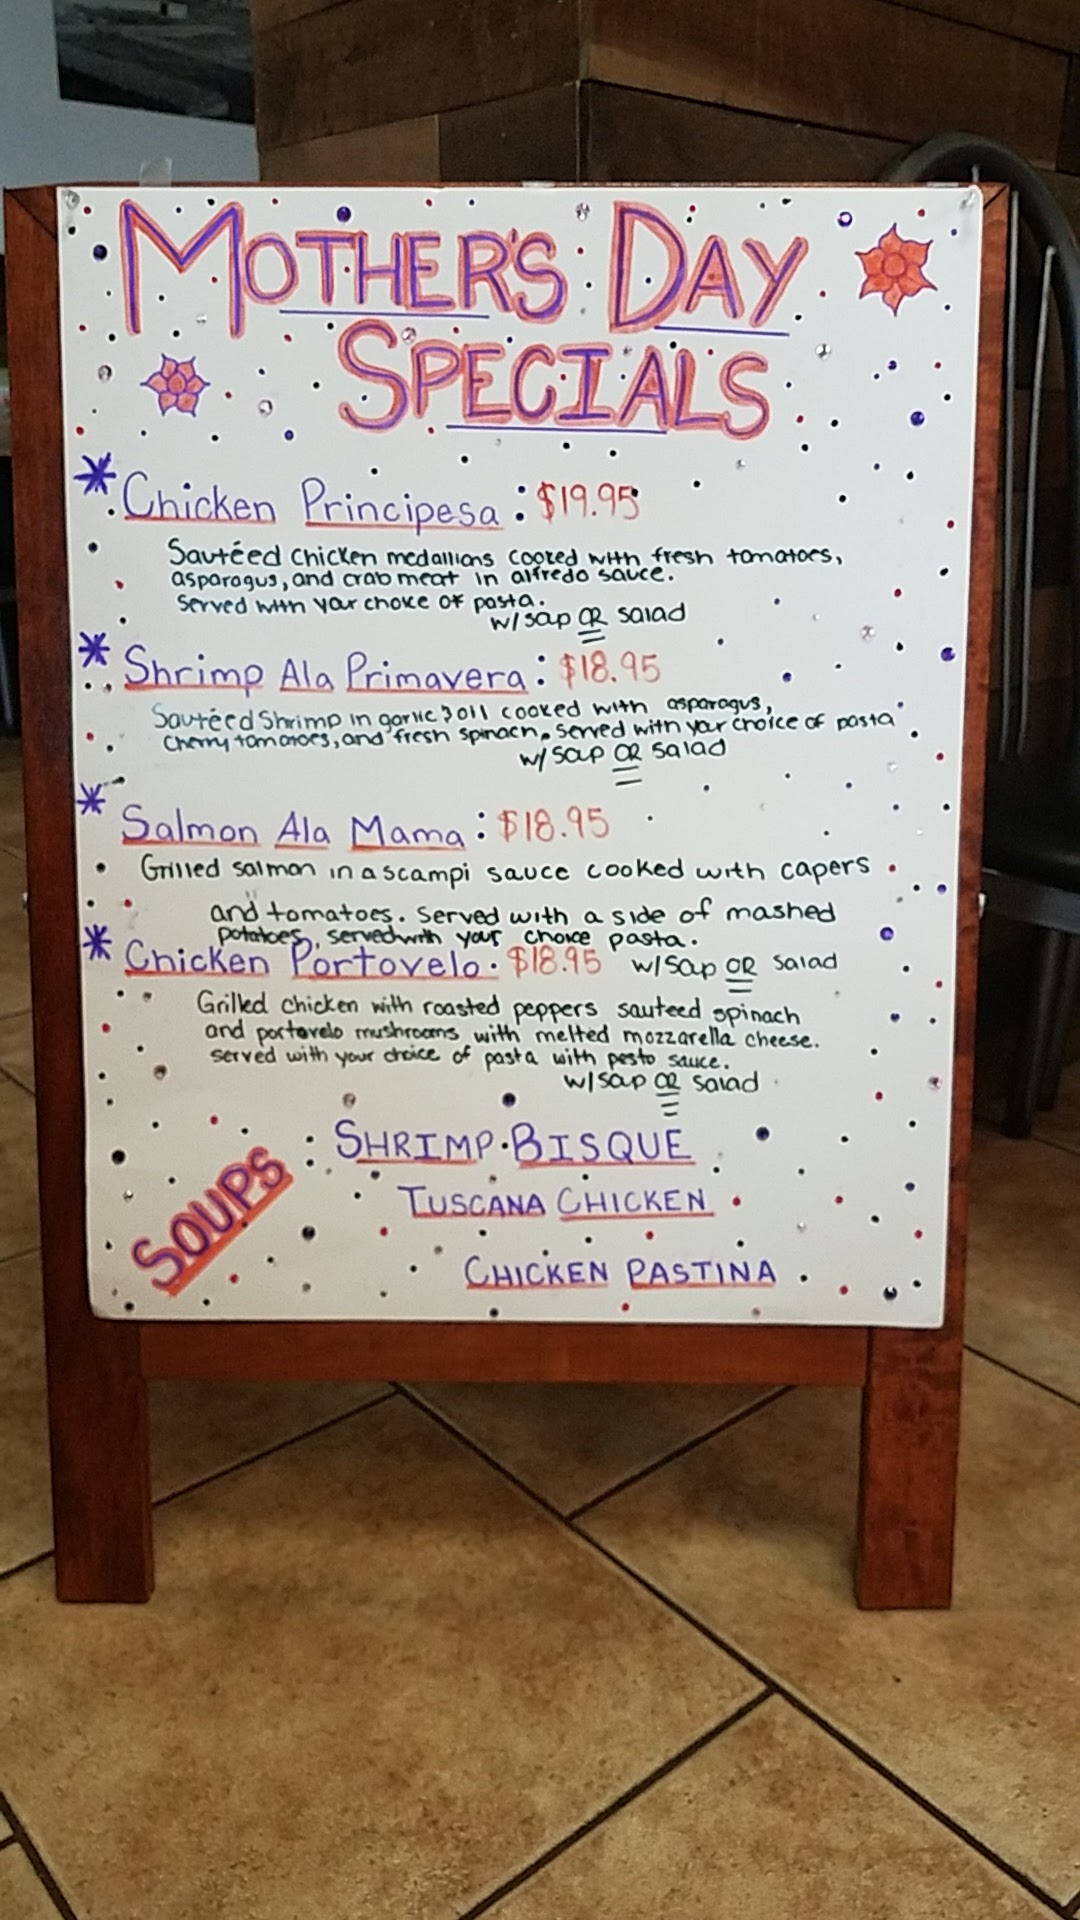 MOTHER'S DAY
SPECIALS
* Chicken Principesa: $19.95
Sautéed chicken medallions cooked with fresh tomatoes,
asparagus, and crab meat in alfredo sauce.
Served with your choice of pasta.
w/ soup OR salad
* Shrimp Ala Primavera: $18.95
Sautéed Shrimp in garlic & oil cooked with asparagus,
Cherry tomatoes, and fresh spinach. served with your choice of pasta
w/ soup OR salad
* Salmon Ala Mama: $18.95
Grilled salmon in a scampi sauce cooked with capers
and tomatoes. Served with a side of mashed
potatoes, served with your choice pasta.
* Chicken Portovelo. $18.95 w/ soup OR salad
Grilled chicken with roasted peppers sauteed spinach
and portovelo mushrooms with melted mozzarella cheese.
served with your choice of pasta with pesto sauce.
w/ soup OR salad
SOUPS : SHRIMP BISQUE
TUSCANA CHICKEN
CHICKEN PASTINA